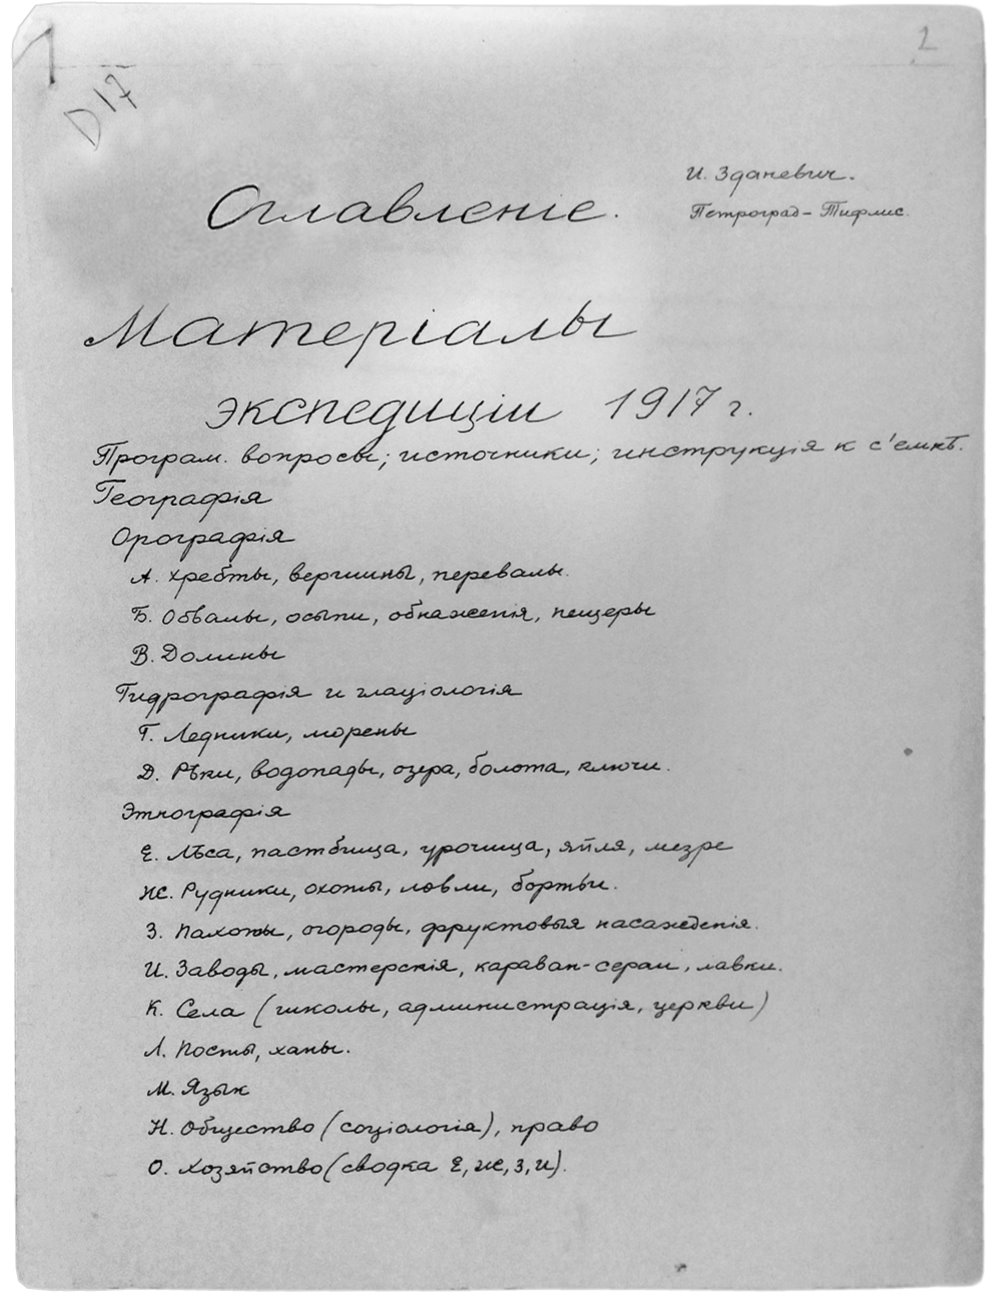 2
D17
И. Зданевич.
Петроград-Тифлис.
Оглавленіе.
Матеріалы
экспедиціи 1917 г.
Програм. вопросы; источники; инструкція к с'емкѣ.
Географія
Орографія
А. Хребты, вершины, перевалы.
Б. Обвалы, осыпи, обнаженія, пещеры
В. Долины
Гидрографія и глаціологія
Г. Ледники, морены
Д. Рѣки, водопады, озера, болота, ключи.
Этнографія
Е. Лѣса, пастбища, урочища, яйля, мезре
Ж. Рудники, охоты, ловли, бортьи.
З. Пахоты, огороды, фруктовыя насажденія.
И. Заводы, мастерскія, караван-сераи, лавки.
К. Села (школы, администрація, церкви)
Л. Посты, ханы.
М. Язык
Н. Общество (соціологія), право
О. Хозяйство (сводка Е, Ж, З, И).